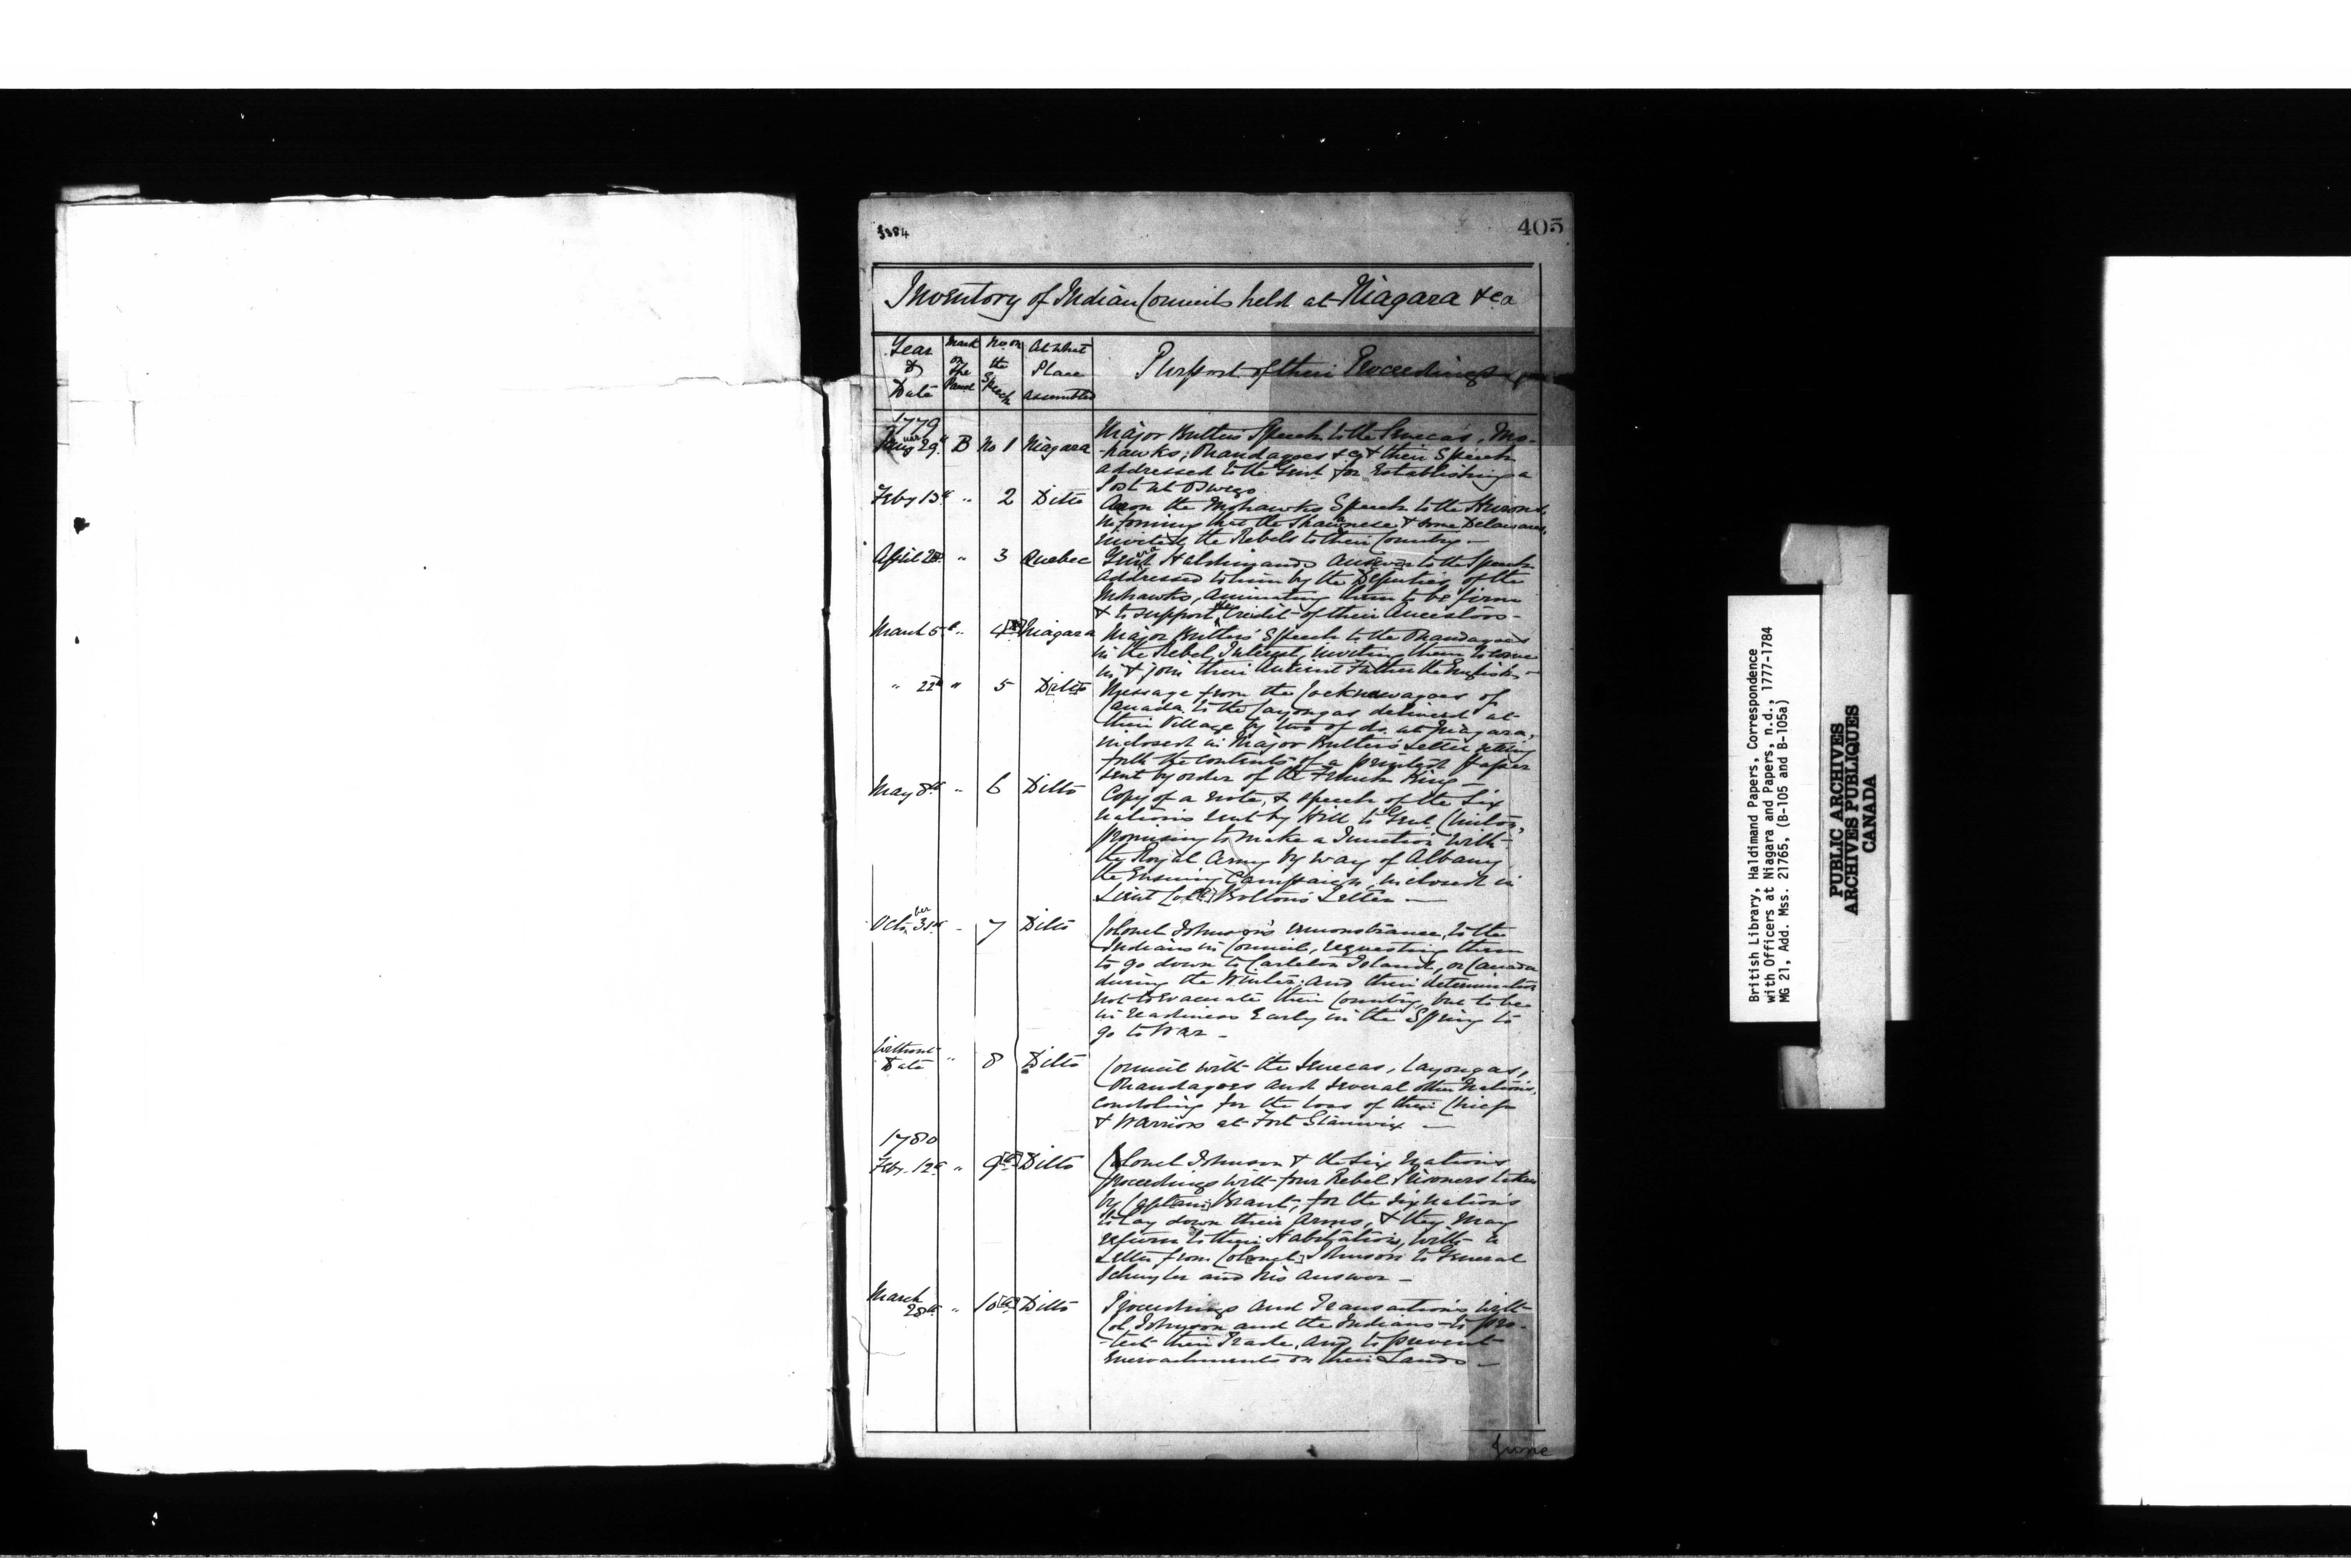 405
Inventory of Indian Councils held at Niagara &ca
Year & Date
Mark on the Parcel
No on the Speech
At what Place assembled
Purport of their Proceedings
1779
Januar 29th B No 1 Niagara Major Butler's Speech to the Senecas, Mo-
-hawks, Onandagoes &c & their Speech
addressed to the Genl for Establishing a
Post at Oswego
Feby 13th " 2 Ditto Aaron the Mohawks Speech to the Hurons
informing that the Shawnese & some Delawares,
invited the Rebels to their Country —
April " 3 Quebec Haldimands Answer to the Speech
addressed to him by the Deputies of the
Mohawks, animating them to be firm
& to support the Credit of their Ancestors —
March 5th " 4 Niagara Major Butlers' Speech to the Onandagoes
in the Rebel Interest, inviting them to come
in & join their Antient Father the English —
" 22d " 5 Ditto Message from the Cocknawagoes of
Canada to the Cayongas delivered at
their Village by two of do. at Niagara,
inclosed in Major Butler's Letter setting
forth the contents of a printed paper
sent by order of the French King —
May 8th " 6 Ditto Copy of a note, & speech of the Six
Nations sent by Hill to Genl Clinton,
promising to make a Junction with
the Royal Army by way of Albany
the Ensuing Campaign, inclosed in
Lieut Col Bolton's Letter —
October 31st - 7 Ditto Colonel Johnson's remonstrance, to the
Indians in Council, requesting them
to go down to Carleton Island, or Canada
during the Winter; and their determination
not to evacuate their Country, but to be
in readiness Early in the Spring to
go to War —
Without Date " 8 Ditto Council with the Senecas, Cayongas,
Onandagoes and several other Nations,
condoling for the loss of their Chiefs
& Warriors at Fort Stanwix —
1780
Feby. 12th " 9[th] Ditto Colonel Johnson & the Six Nations
proceedings with four Rebel Prisoners taken
by Capt[ain] Brant, for the Six Nations
to lay down their Arms, & they may
return to their Habitations, with a
Letter from Col[onel] Johnson to General
Schuyler and his answer —
March 28th " 10[th] Ditto Proceedings and Transactions with
Col. Johnson and the Indians to pro-
-tect their Trade, and to prevent
Encroachments on their Lands —
June
British Library, Haldimand Papers, Correspondence
with Officers at Niagara and Papers, n.d., 1777-1784
MG 21, Add. Mss. 21765, (B-105 and B-105a)
PUBLIC ARCHIVES
ARCHIVES PUBLIQUES
CANADA